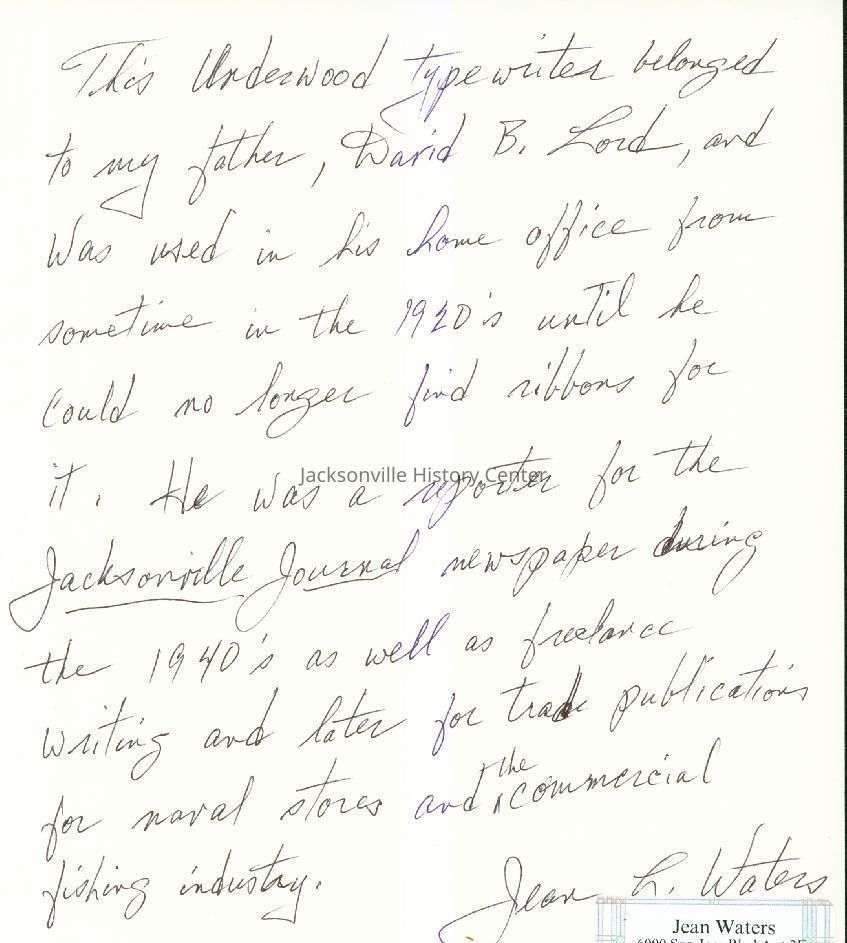 This Underwood typewriter belonged
to my father, David B. Lord, and
was used in his home office from
sometime in the 1920's until he
could no longer find ribbons for
it. He was a reporter for the
Jacksonville History Center
Jacksonville Journal newspaper during
the 1940's as well as freelance
writing and later for trade publications
for naval stores and the commercial
fishing industry.
Jean L. Waters
Jean Waters